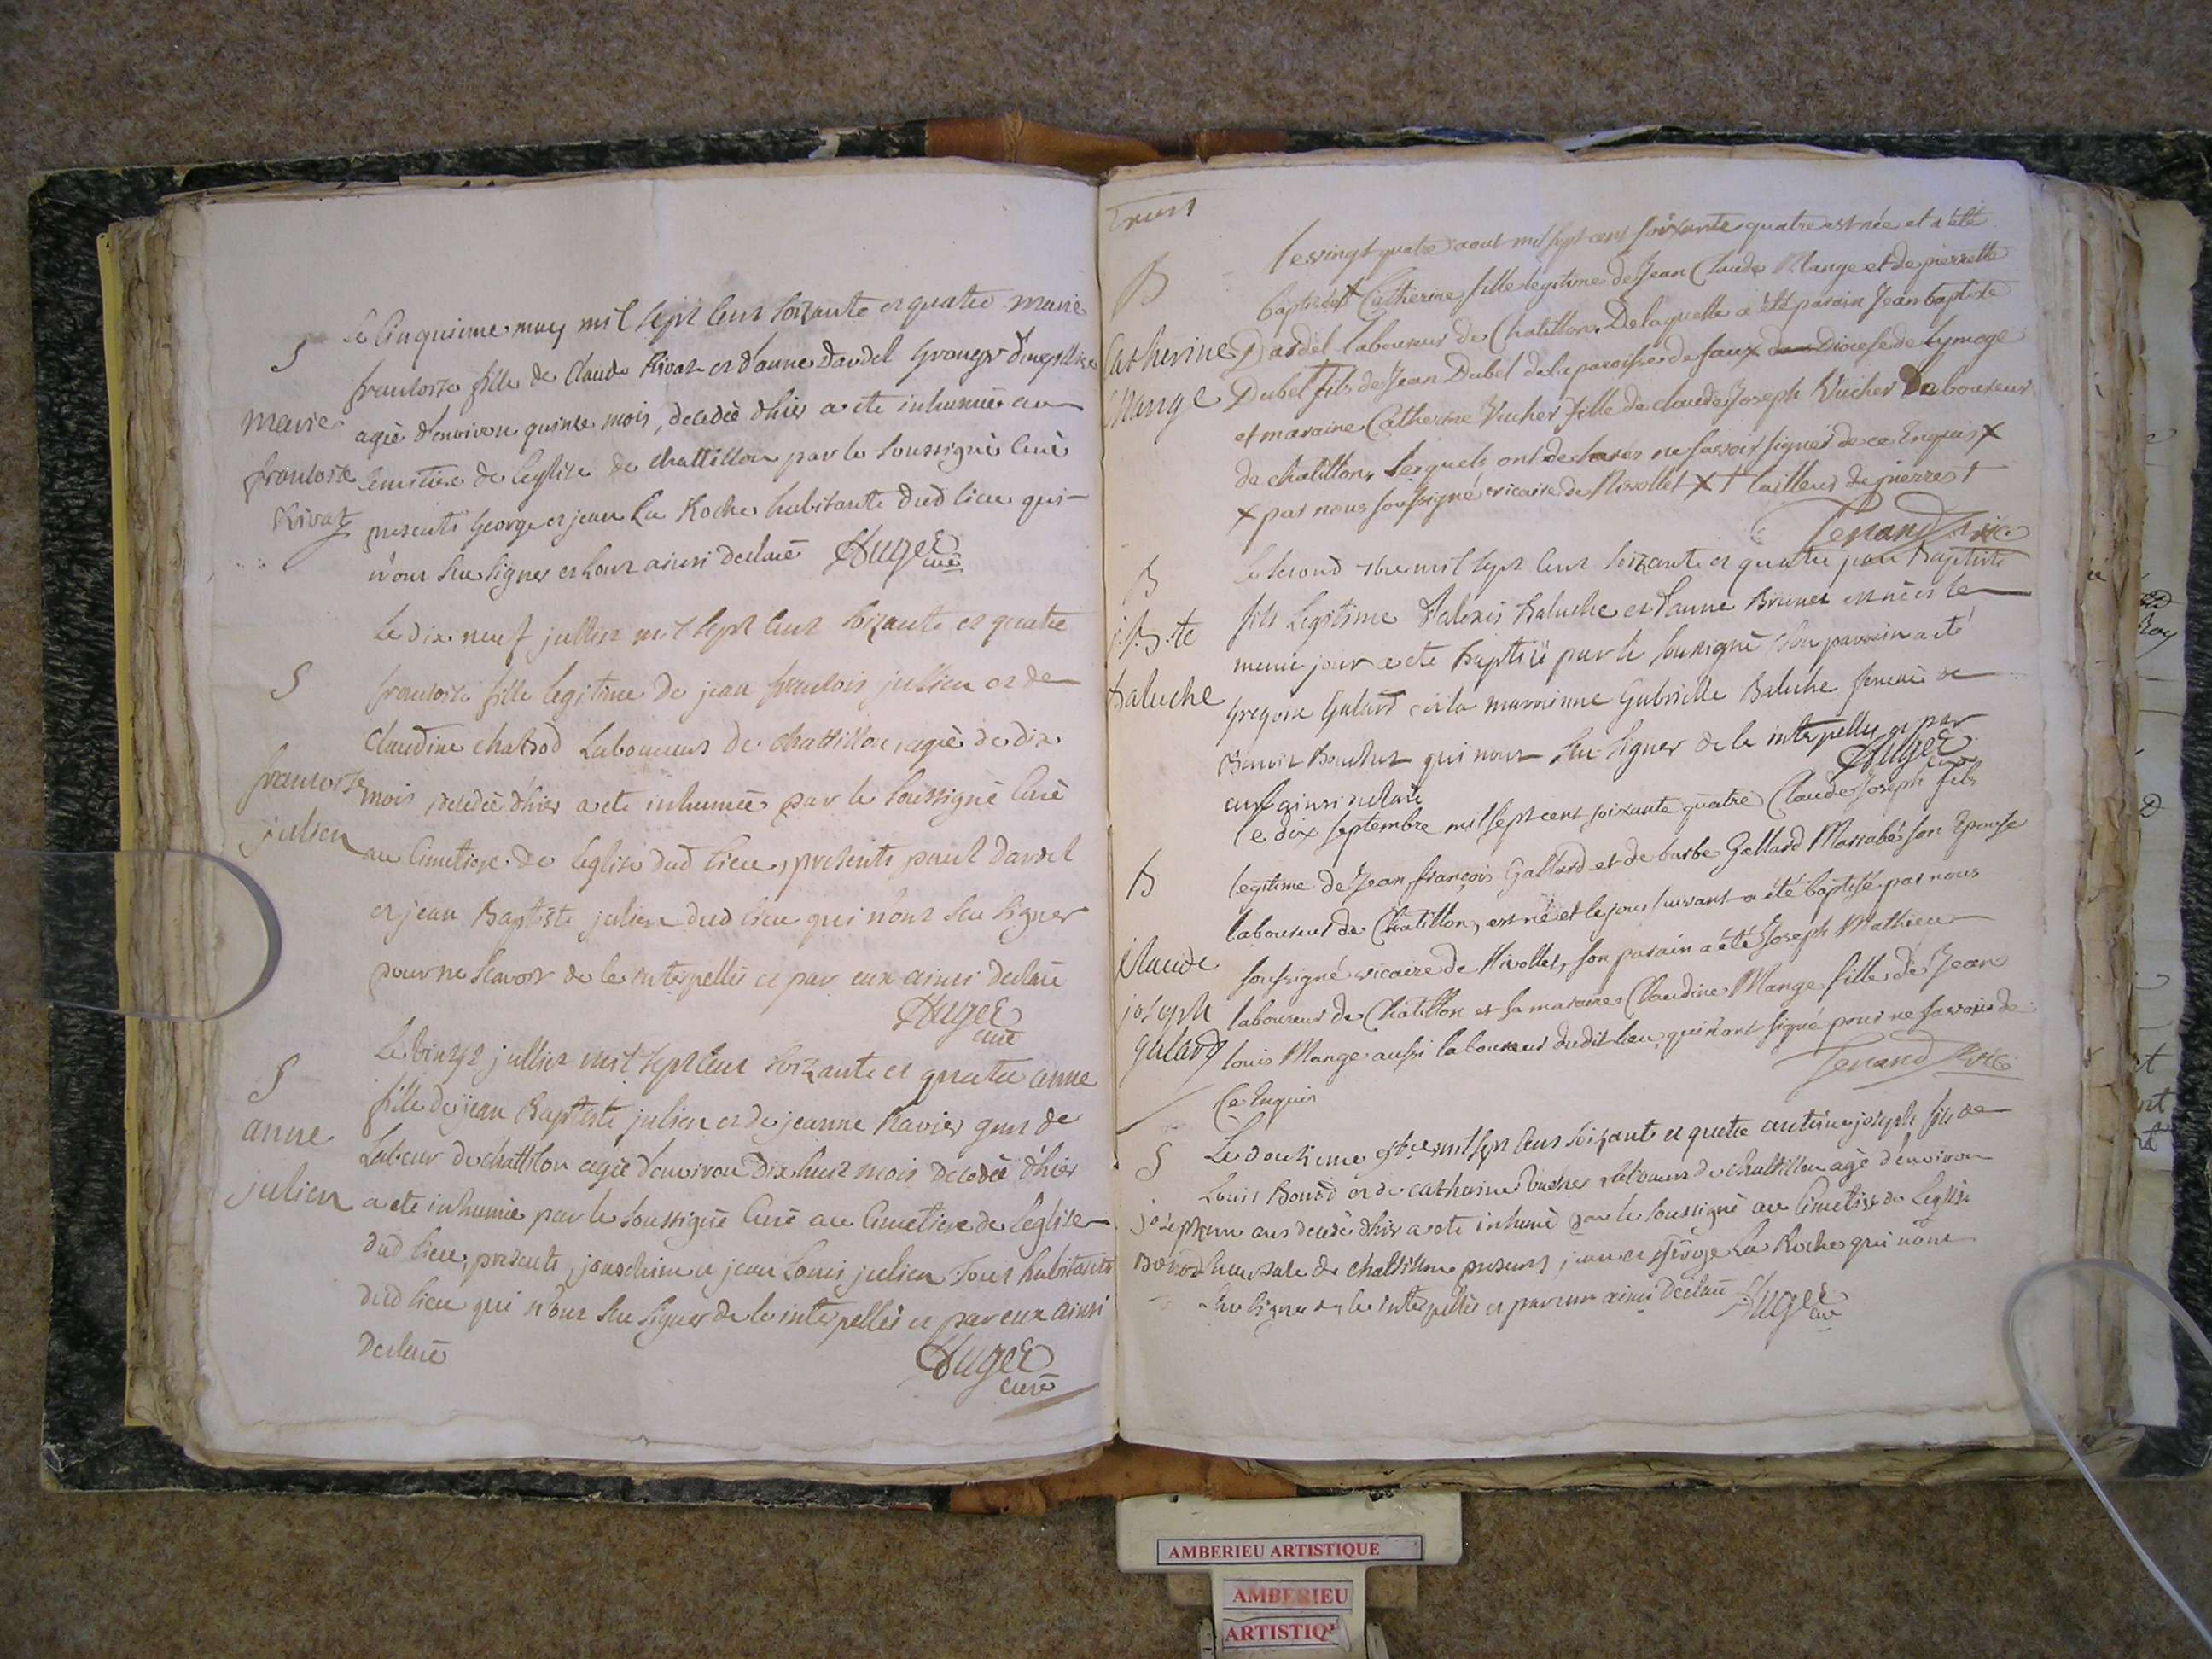 S
marie
francoise
Rivat
le Cinquieme may mil sept cent soixante et quatre marie
francoise fille de Claude Rivat et d'anne Dardel
agée d'environ quinse mois, decedée d'hier a ete inhumée au
Cimetiere de leglise de chattillon par le soussigné Curé
presents George et jean La Roche habitants dud lieu qui
n'ont seu signer et l'ont ainsi declaré Auger
curé
S
francoise
julien
Le dix neuf jullier mil sept cent soixante et quatre
francoise fille legitime de jean francois jullien et de
Claudine chatrod Laboureurs de chattillon, agée de dix
mois, decedée d'hier a ete inhumée par le soussigné Curé
au Cimetiere de leglise dud lieu, presents paul dardel
et jean Baptiste julien dud lieu qui n'ont seu signer
pour ne scavoir de ce interpellés et par eux ainsi declaré
Auger
curé
S
anne
julien
Le vingt jullier mil sept cent soixante et quatre anne
fille de jean Baptiste julien et de jeanne Ravier gens de
Labeur de chattillon agée d'environ dix huit mois decedée d'hier
a ete inhumée par le soussigné Curé au Cimetiere de l'eglise
dud lieu, presents, jouachim et jean Louis julien tous habitants
dud lieu qui n'ont seu signer de ce interpellés et par eux ainsi
declaré
Auger
curé
B
Catherine
Mange
le vingt quatre aout mil sept cent soixante quatre est née et a été
baptisée X Catherine fille legitime de Jean Claude Mange et de pierrette
Dardel laboureur de Chatillon. De laquelle a été parain Jean baptiste
Dubel † fils de Jean Dubel de la paroisse de faux Diocese de Lymoge
et maraine Catherine Vucher fille de claude Joseph Vucher Laboureur
de chatillon, lesquels ont declarés ne savoir signer de ce Enquis X
X par nous soussigné vicaire de Nivollet X † tailleur de pierres †
Tenand vic
B
j. B.te
Baluche
le second 7bre mil sept cent soixante et quatre jean Baptiste
fils Legitime d'alexis Baluche et d'anne Brunet est né et le
meme jour a ete Baptisé par le soussigné son parrain a eté
gregoire Galard et la marrainne Gabrielle Baluche femme de
Benoit qui n'ont seu signer de ce interpellés et par
eux ainsi declaré
Auger
curé
B
Claude
joseph
galard
le dix septembre mil sept cent soixante quatre Claude Joseph fils
legitime de Jean françois Gallard et de barbe Gallard Massabé son Epouse
laboureur de Chatillon, est né et le jour suivant a été baptisé par nous
soussigné vicaire de Nivollet, son parain a été Joseph Mathieu
laboureur de Chatillon et sa maraine Claudine Mange fille de Jean
louis Mange aussi laboureur dudit lieu, qui n'ont signé pour ne savoir de
Ce Enquis
Tenand vic
S
joseph
Borrod
Le douzieme mil sept cent soixante et quatre antoine joseph fils de
Louis Borrod et de catherine Vucher laboureurs de chattillon agé d'environ
un ans decedé d'hier a ete inhumé par le soussigné au Cimetiere de Leglise
succursale de chattillon presents jean et george La Roche qui n'ont
seu signer de ce interpellés et par eux ainsi declaré Auger
curé
AMBERIEU ARTISTIQUE
AMBERIEU
ARTISTIQ